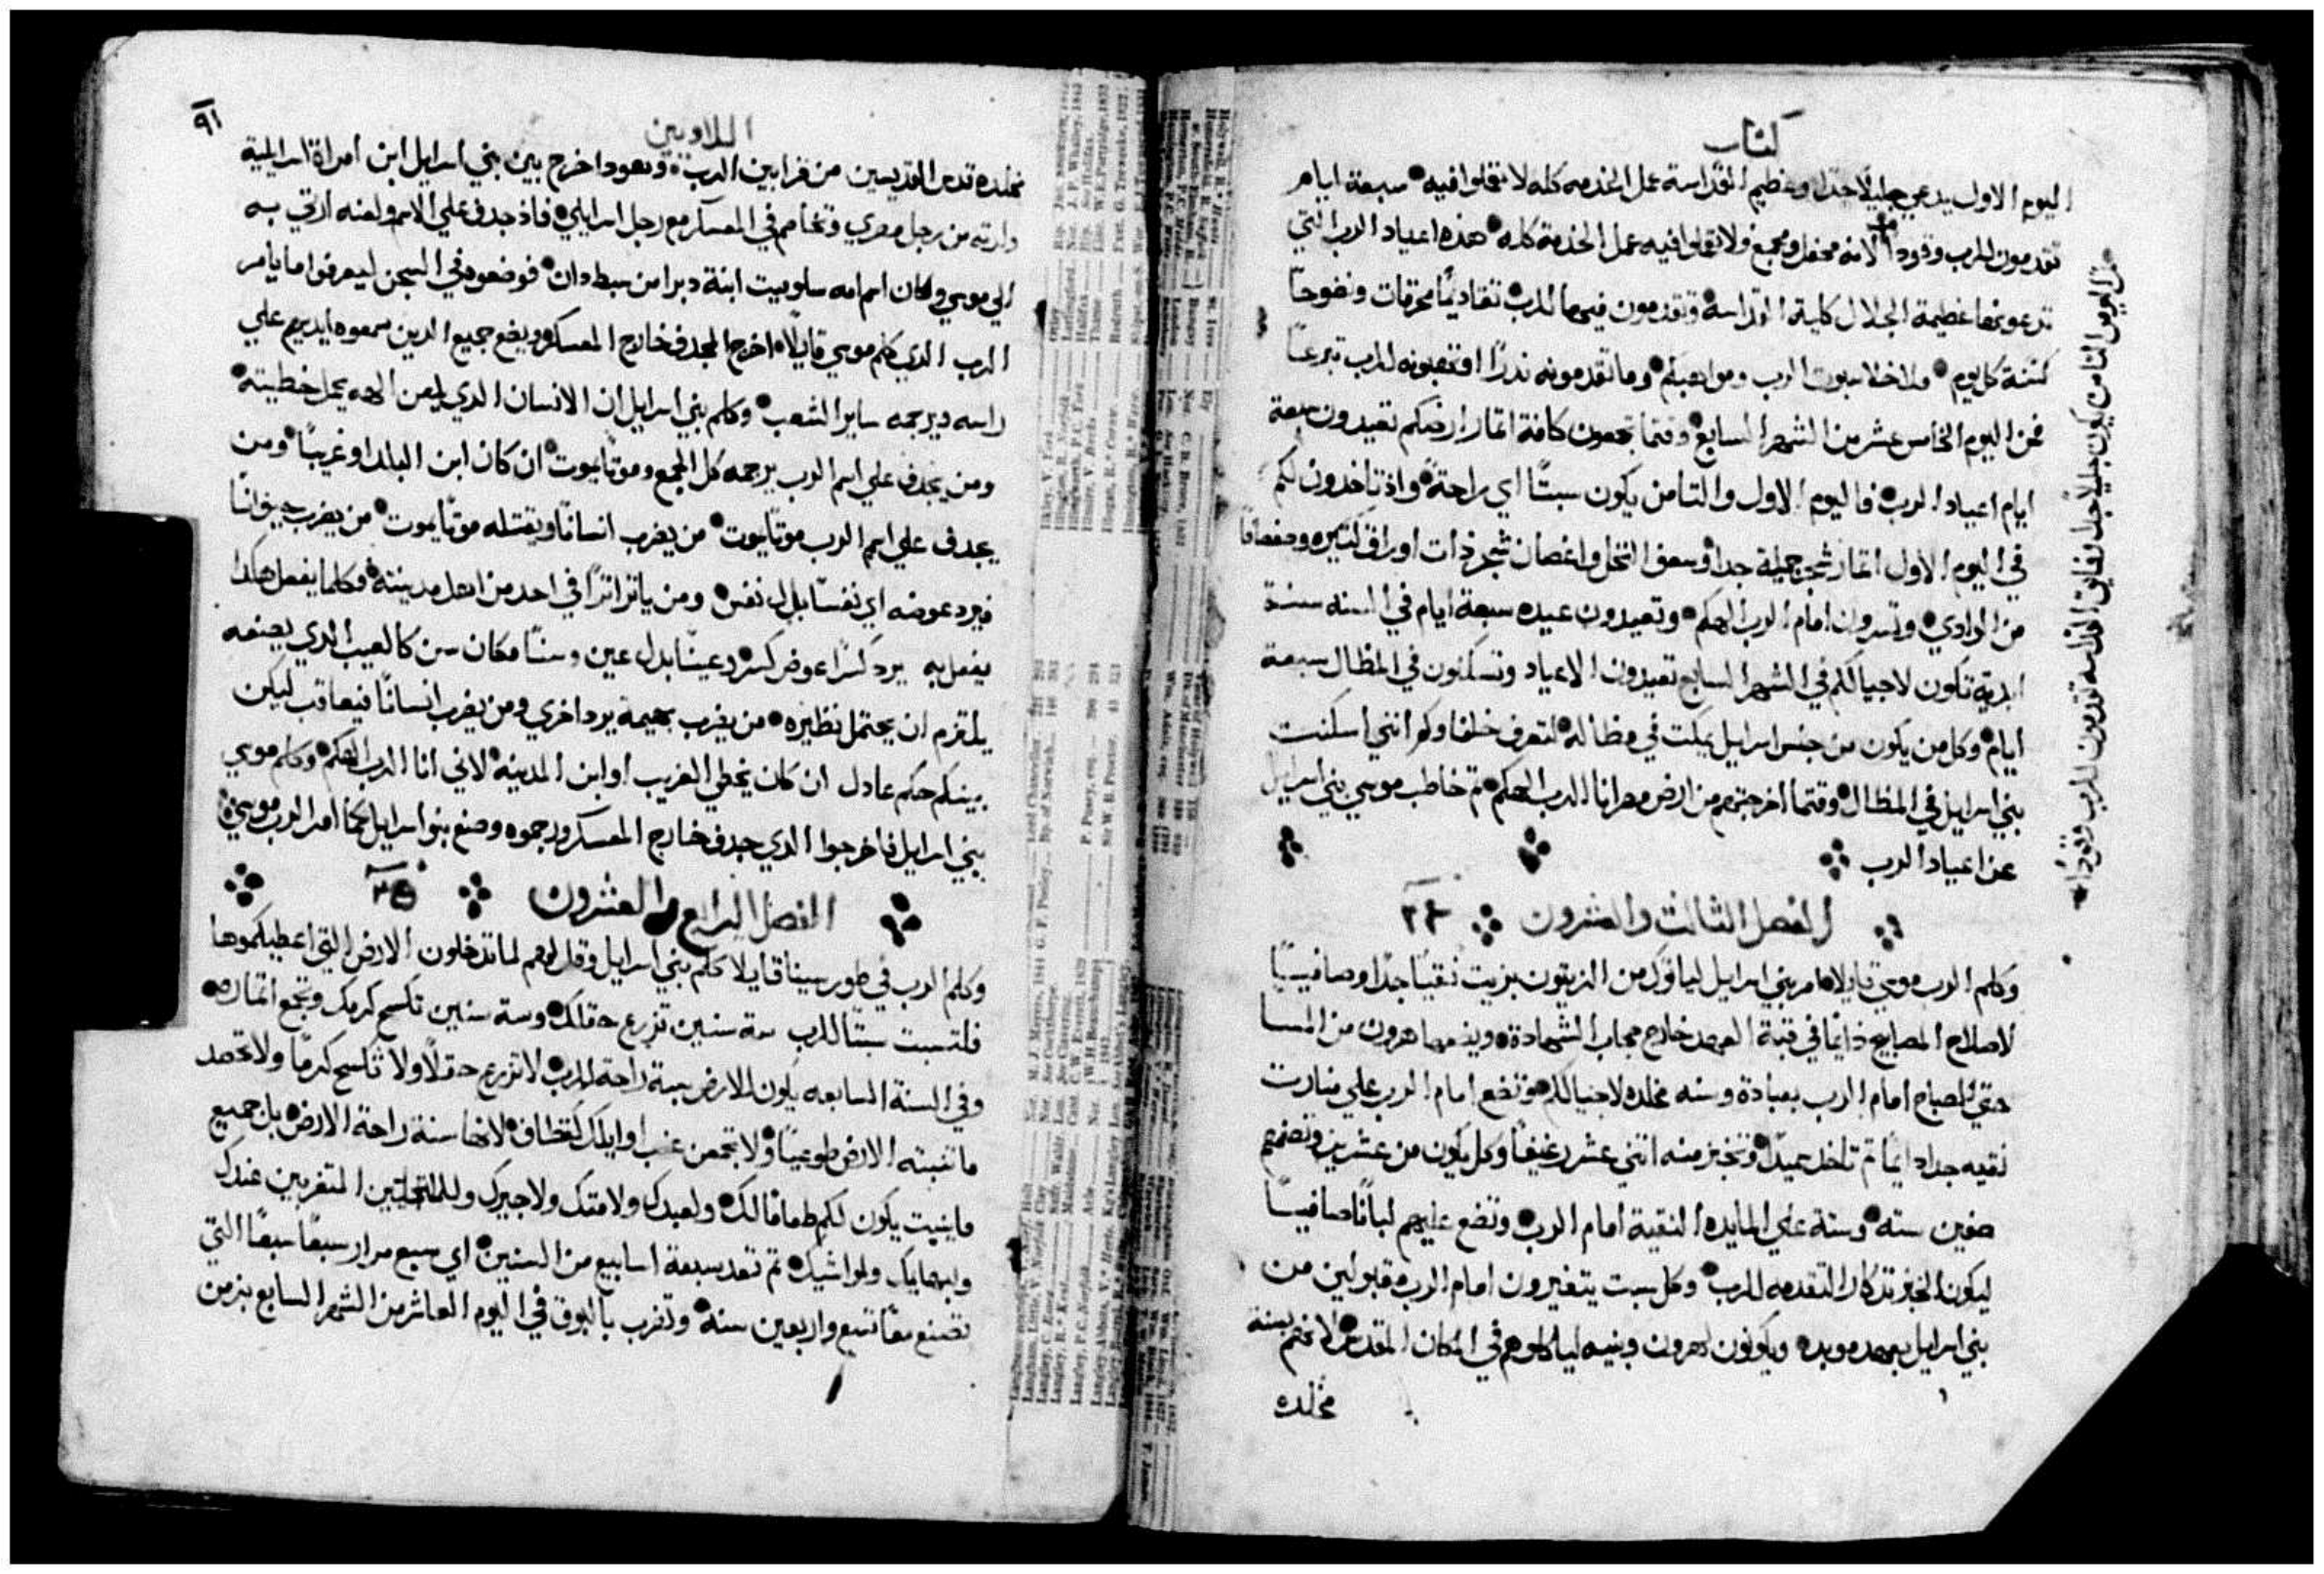 كتاب
اليوم الاول يدعي جليلًا جدا وعظيم القداسة عمل الخدمه كله لا تعملوا فيه سبعة ايام
تقدمون للرب وقودا لانه محفل ومجمع ولا تعملوا فيه عمل الخدمة كله هذه اعياد الرب التي
تدعونها عظيمة الجلال كلية القداسة وتقدمون فيها للرب تقاديمًا محرقات ونضوحًا
كسنة كل يوم ماخلا سبوت الرب ومواهبكم وما تقدمونه ندرًا او تعطونه للرب تبرعًا
فمن اليوم الخامس عشر من الشهر السابع وقتما تجمعون كافة اتمار ارضكم تعيدون سبعة
ايام اعياد الرب فاليوم الاول والتامن يكون سبتًا اي راحةً واذ تاخدون لكم
في اليوم الاول اتمار شجر جميلة جدا وسعف النخل واغصان شجر ذات اوراق كتيره وصفصافا
من الوادي وتسرون امام الرب الهكم وتعيدون عيده سبعة ايام في السنه سنة
ابدية تكون لاجيالكم في الشهر السابع تعيدون الاعياد وتسكنون في المظال سبعة
ايام وكل من يكون من جنس اسرايل يمكت في مظاله لتعرف خلفاوكم انني اسكنت
بني اسرايل في المظال وقتما اخرجتهم من ارض مصر انا الرب الهكم تم خاطب موسي بني اسرايل
عن اعياد الرب
الفصل الثالث والعشرون
وكلم الرب موسي قايلا امر بني اسرايل لياتوك من الزيتون بزيت نقيًا جدًا وصافيًا
لاصلاح المصابيح دايمًا في قبة العهد خارج حجاب الشهادة ويضعها هرون من المسا
حتي الصباح امام الرب بعبادة وسنه مخلده لاجيالكم وتضع امام الرب علي منارت
نقيه جدا دايمًا تم تاخد سميدًا وتخبز منه اتني عشر رغيفًا وكل يكون من عشرين وتضعهم
صفين سته وستة علي المايده النقية امام الرب وتضع عليهم لبانًا صافيًا
ليكون الخبز تدكار التقدمه للرب وكل سبت يتغيرون امام الرب مقبولين من
بني اسرايل بعهد موبده ويكونون لهرون وبنيه لياكلوهم في المكان المقدس لانهم بسنة
مخلده
اليوم التامن يكون جليلًا جدا فايق القداسه تقدمون للرب وقودا
٩١
اللاويين
مخلده قدس القديسين من قرابين الرب وهودا خرج بين بني اسرايل ابن امراة اسرايلية
ولدته من رجل مصري وتخاصم في المعسكر مع رجل اسرايلي فاذ جدف علي الاسم ولعنه اتي به
الي موسي وكان اسم امه سلوميت ابنة دبرا من سبط دان فوضعوه في السجن ليعرفوا ما يامر
الرب الدي كلم موسي قايلًا اخرج المجدف خارج المعسكر ويضع جميع الدين سمعوه ايديهم علي
راسه ويرجمه ساير الشعب وكلم بني اسرايل ان الانسان الدي يلعن الهه يحمل خطيته
ومن يجدف علي اسم الرب يرجمه كل المجمع وموتًا يموت ان كان ابن البلد او غريبًا ومن
يجدف علي اسم الرب موتًا يموت من يضرب انسانًا ويقتله موتًا يموت من يضرب حيوانًا
فيرد عوضه اي نفسًا بدل نفس ومن ياتر اترًا في احد من اهل مدينته فكلما يفعل هكدا
يفعل به يرد كسرًا عوض كسر وعينًا بدل عين وسنًا مكان سن كالعيب الدي يصنعه
يلتزم ان يحتمل نظيره من يضرب بهيمة يرد اخري ومن يضرب انسانًا فيعاقب ليكن
بينكم حكم عادل ان كان يخطي الغريب او ابن المدينه لاني انا الرب الهكم وكلم موسي
بني اسرايل فاخرجوا الدي جدف خارج المعسكر ورجموه وصنع بنو اسرايل كما امر الرب موسي
الفصل الرابع والعشرون
وكلم الرب في طور سينا قايلا كلم بني اسرايل وقل لهم لما تدخلون الارض التي اعطيكموها
فلتسبت سبتًا للرب ستة سنين تزرع حقلك وستة سنين تكسح كرمك وتجمع اتماره
وفي السنة السابعه يكون للارض سبتة راحة للرب لا تزرع حقلًا ولا تكسح كرمًا ولا تحصد
ما تنبته الارض طوعيًا ولا تجمعن عنب اوايلك كقطاف لانها سنة راحة الارض بل جميع
ما ينبت يكون لكم طعامًا لك ولعبدك ولامتك ولاجيرك وللملتجيين المتغربين عندك
ولبهايمك ولمواشيك تم تعد سبعة اسابيع من السنين اي سبع مرار سبعًا سبعًا التي
تصنع معًا تسع واربعين سنة وتضرب بالبوق في اليوم العاشر من الشهر السابع بزمن